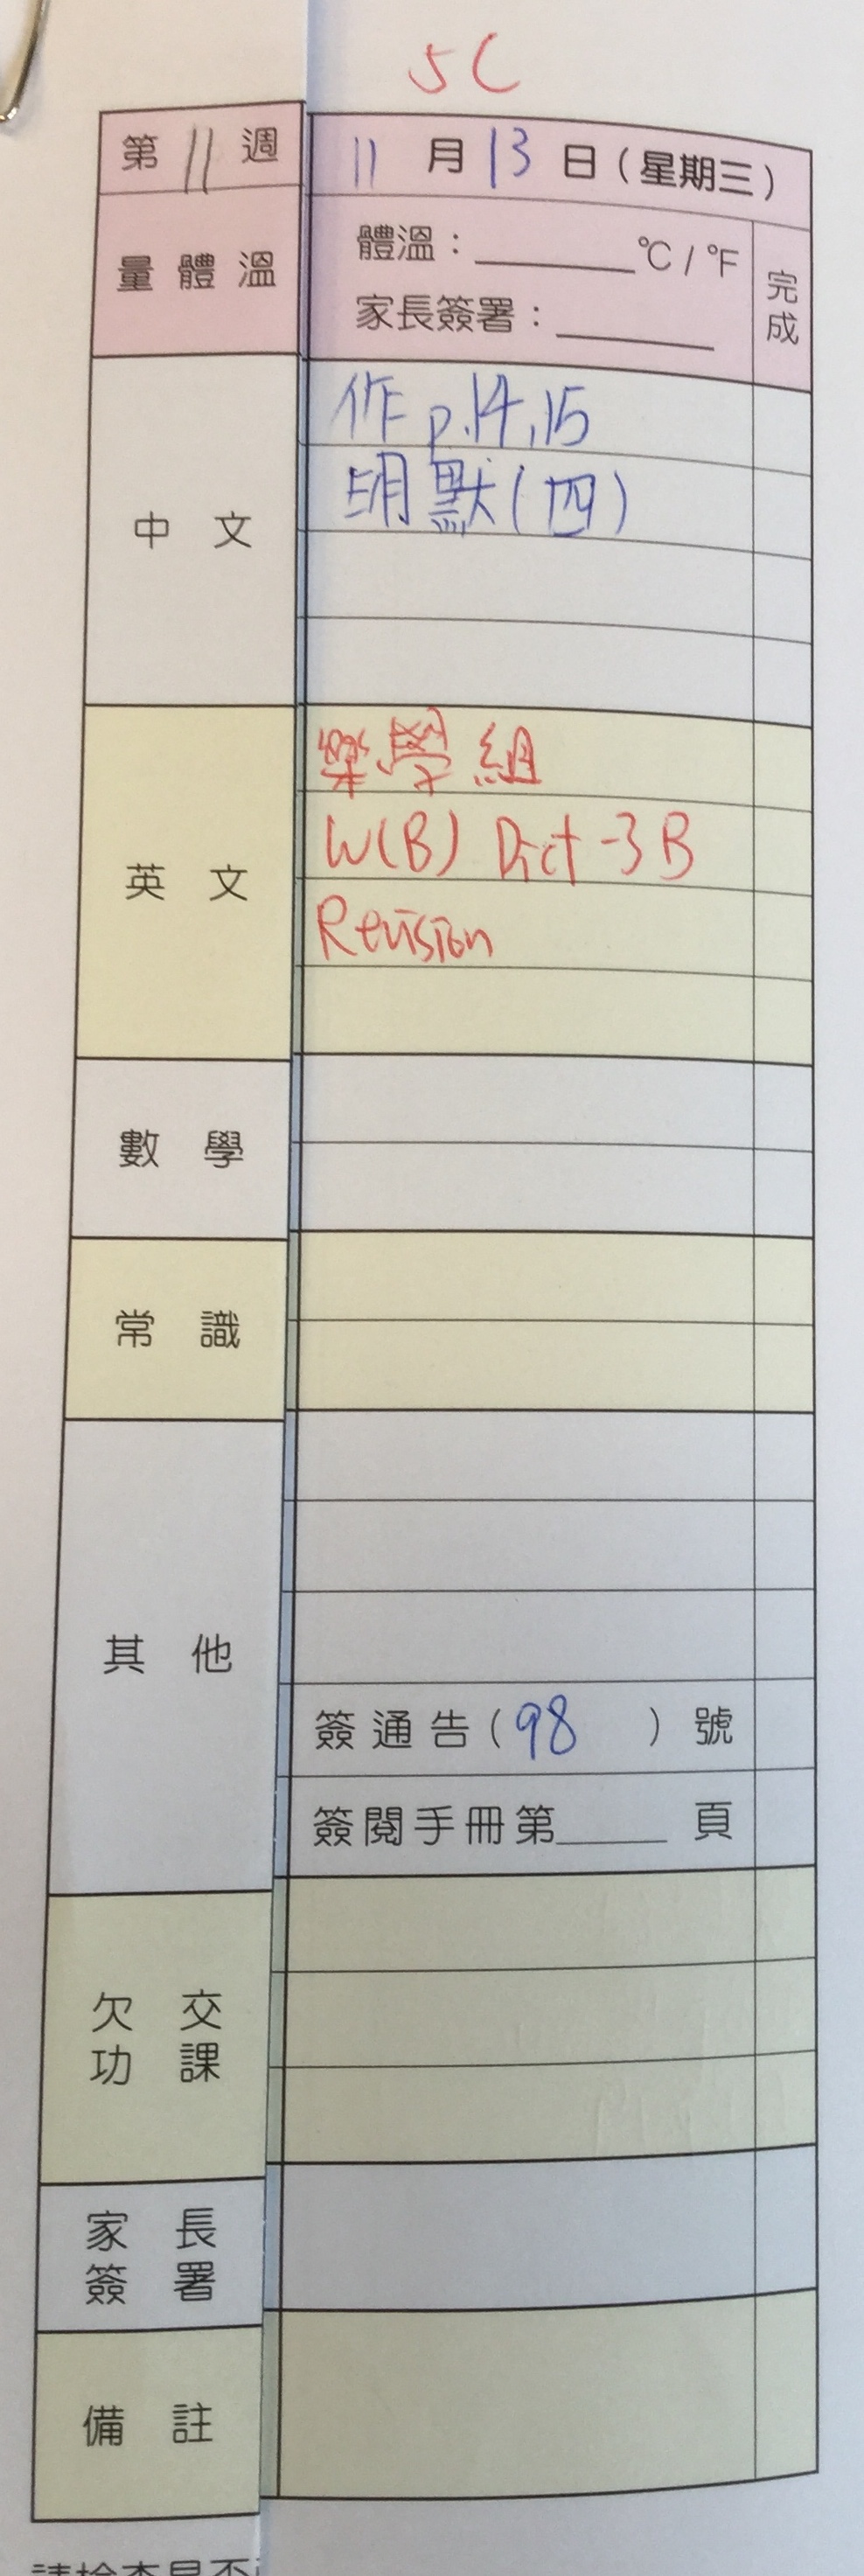 5C
第 11 週 11 月 13 日 (星期三)
量體溫 體溫:______°C / °F 完成
家長簽署:______
中文 作 p.14,15
明默(四)
英文 樂學組
W(B) Dict -3B
Revision
數學
常識
其他
簽通告(98 ) 號
簽閱手冊第____ 頁
欠交
功課
家長
簽署
備註
請檢查是否